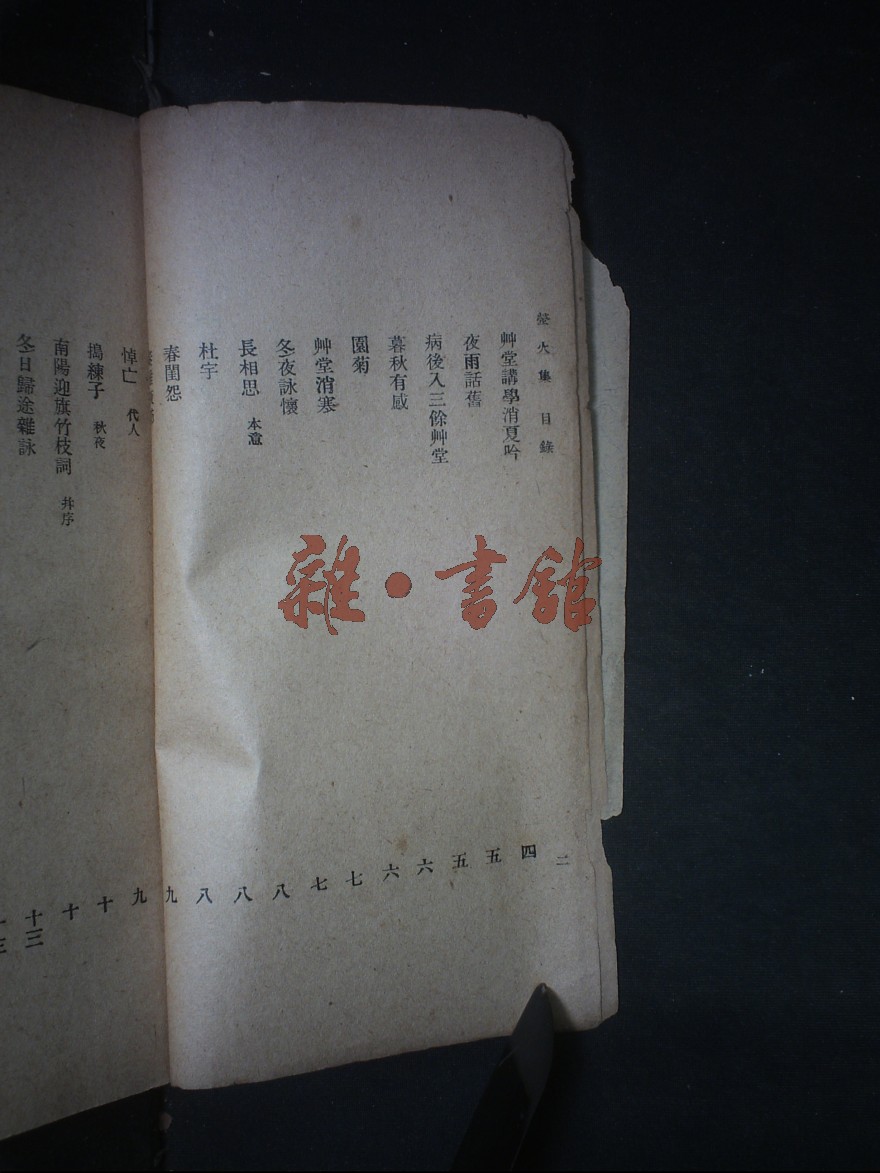 螢火集 目錄 二
艸堂講學消夏吟 四
夜雨話舊 五
病後入三餘艸堂 五
暮秋有感 六
園菊 六
艸堂消寒 七
冬夜詠懷 七
長相思 本意 八
杜宇 八
春閨怨 八
九
悼亡 代人 九
搗練子 秋夜 十
南陽迎旗竹枝詞 幷序 十
冬日歸途雜詠 十三
雜·書館